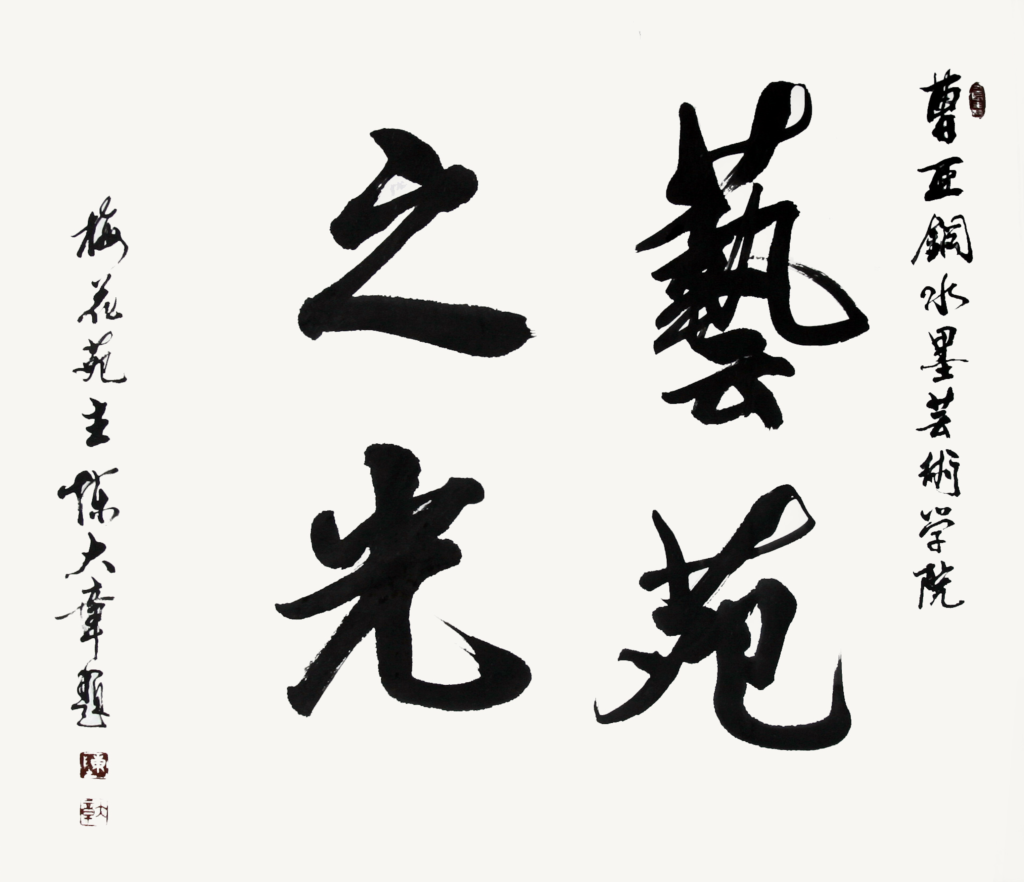 曹亚鋼水墨芸術学院
藝苑
之光
梅花苑主陈大章題